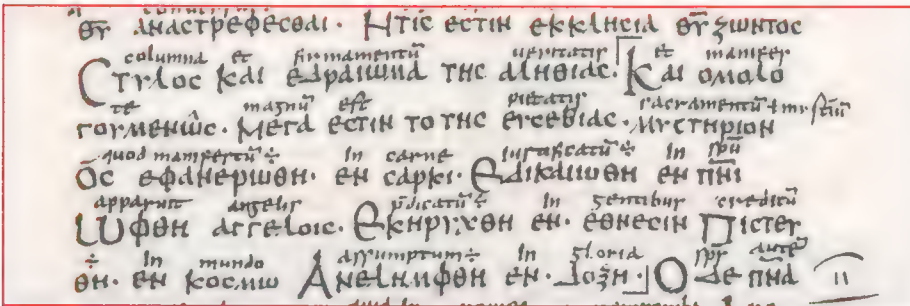 Θ̅Υ̅ ΑΝΑϹΤΡΕΦΕϹΘΑΙ· ΗΤΙϹ ΕϹΤΙΝ ΕΚΚΛΗϹΙΑ Θ̅Υ̅ ΖΩΝΤΟϹ
columna et firmamentū ueritatis et manifes
ϹΤΥΛΟϹ ΚΑΙ ΕΔΡΑΙΩΜΑ ΤΗϹ ΑΛΗΘΙΑϹ· ΚΑΙ ΟΜΟΛΟ
te magnū est pietatis sacramentū ł
ΓΟΥΜΕΝΩϹ· ΜΕΓΑ ΕϹΤΙΝ ΤΟ ΤΗϹ ΕΥϹΕΒΙΑϹ· ΜΥϹΤΗΡΙΟΝ
quod manifestū ÷ in carne iustificatū ÷ in sp̅ū
Ο̅Ϲ ΕΦΑΝΕΡΩΘΗ· ΕΝ ϹΑΡΚΙ· ΕΔΙΚΑΙΩΘΗ ΕΝ Π̅Ν̅Ι̅
apparuit angelis p̄dicatū ÷ in gentibus creditū
ΩΦΘΗ ΑΓΓΕΛΟΙϹ· ΕΚΗΡΥΧΘΗ ΕΝ· ΕΘΝΕϹΙΝ ΠΙϹΤΕΥ
÷ in mundo assumptum ÷ in gloria sp̅s autē
ΘΗ· ΕΝ ΚΟϹΜΩ ΑΝΕΛΗΜΦΘΗ ΕΝ· ΔΟΞΗ· Ο ΔΕ Π̅Ν̅Α̅